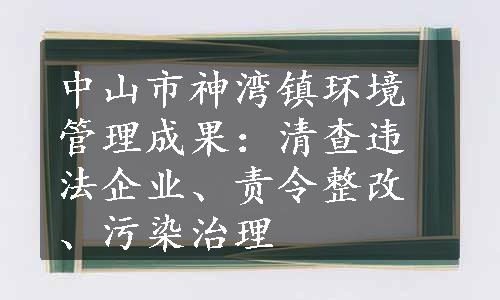 中山市神湾镇环境
管理成果：清查违
法企业、责令整改
、污染治理